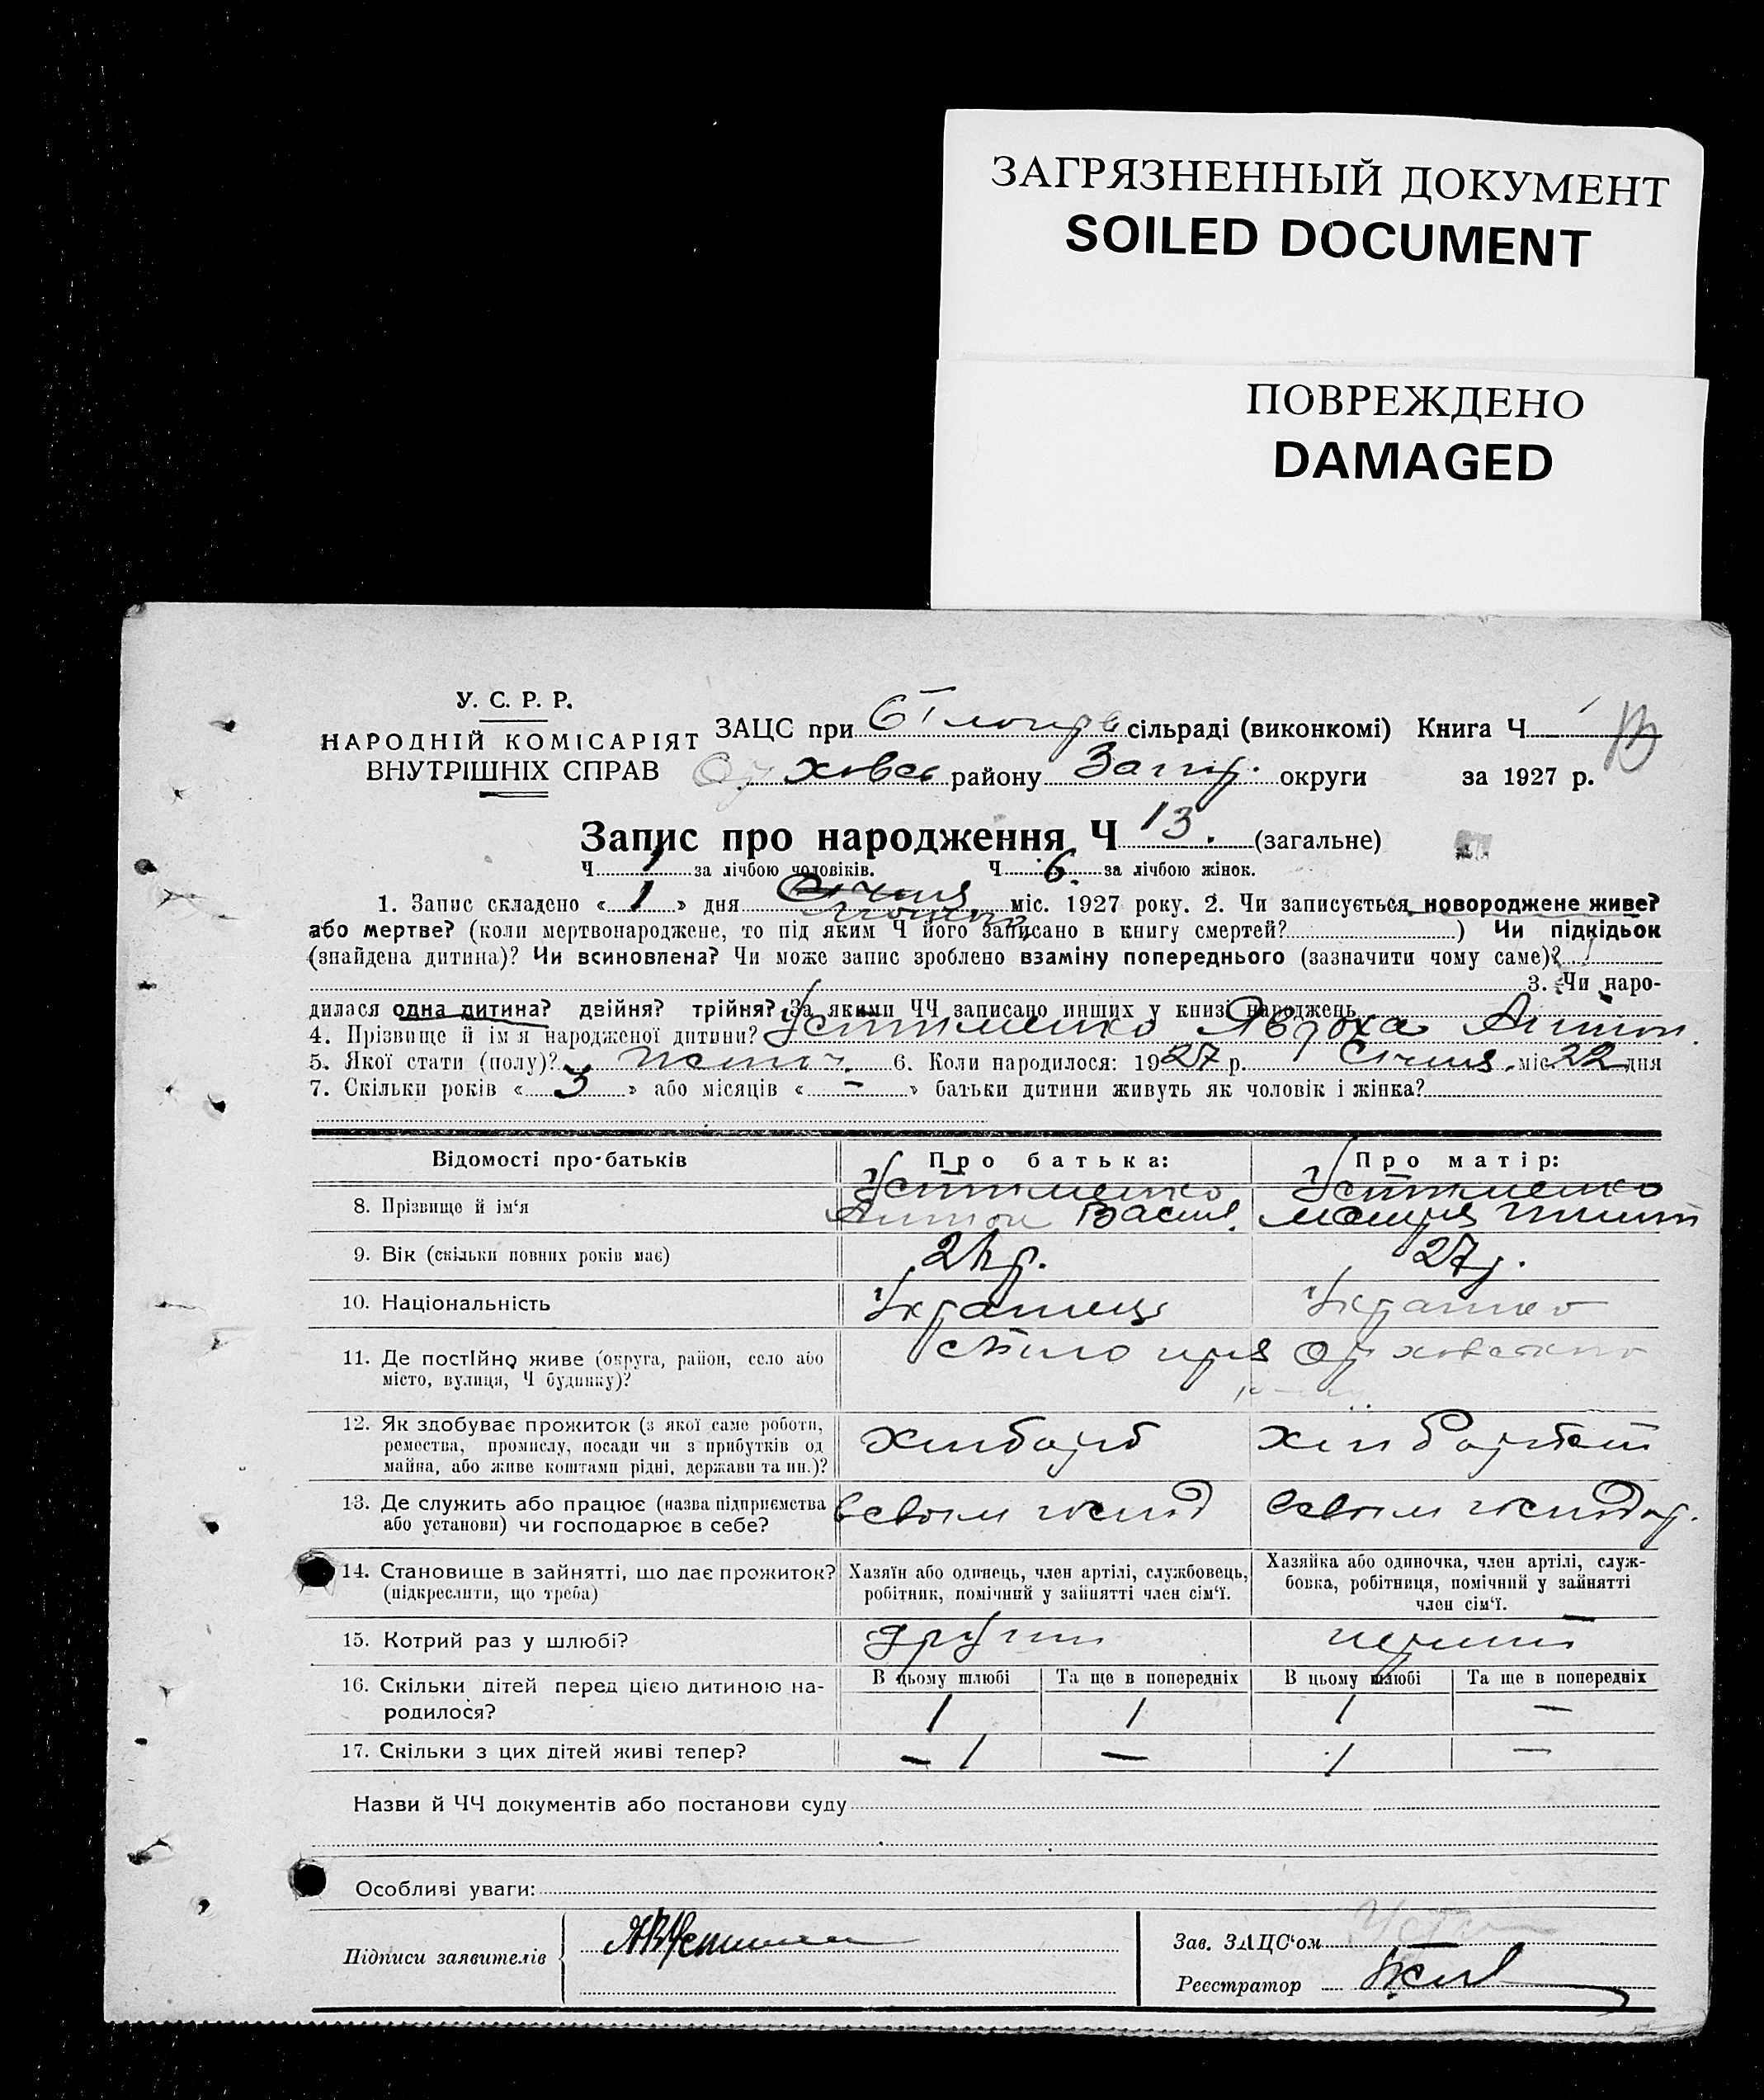 ЗАГРЯЗНЕННЫЙ ДОКУМЕНТ
SOILED DOCUMENT
ПОВРЕЖДЕНО
DAMAGED
У. С. Р. Р.
НАРОДНІЙ КОМІСАРІЯТ
ВНУТРІШНІХ СПРАВ
ЗАЦС при сільраді (виконкомі) Книга Ч
району Запор. округи за 1927 р.
Запис про народження Ч 13. (загальне)
Ч 7 за лічбою чоловіків. Ч 6. за лічбою жінок.
1. Запис складено « 1 » дня міс. 1927 року. 2. Чи записується новороджене живе?
або мертве? (коли мертвонароджене, то під яким Ч його записано в книгу смертей? ) Чи підкідьок
(знайдена дитина)? Чи всиновлена? Чи може запис зроблено взаміну попереднього (зазначити чому саме)?
3. Чи наро-
дилася одна дитина? двійня? трійня? За якими ЧЧ записано инших у книзі народжень
4. Прізвище й ім'я народженої дитини? Устименко Явдоха Антон.
5. Якої стати (полу)? жіноч. 6. Коли народилося: 1927 р. Січня міс. 22 дня
7. Скільки років « 3 » або місяців « – » батьки дитини живуть як чоловік і жінка?
Відомості про батьків Про батька: Про матір:
8. Прізвище й ім'я Устименко Устименко
Антон Васил. Мотря
9. Вік (скільки повних років має) 27 р.
10. Національність Українець Українка
11. Де постійно живе (округа, район, село або
місто, вулиця, Ч будинку)?
12. Як здобуває прожиток (з якої саме роботи, Хліборб Хліборобст
ремества, промислу, посади чи з прибутків од
майна, або живе коштами рідні, держави та ин.)?
13. Де служить або працює (назва підприємства в своїм госпд в своїм господар.
або установи) чи господарює в себе?
14. Становище в зайнятті, що дає прожиток? Хазяїн або одинець, член артілі, службовець, Хазяйка або одиночка, член артілі, служ-
(підкреслити, що треба) робітник, помічний у зайнятті член сім'ї. бовка, робітниця, помічний у зайнятті
член сім'ї.
15. Котрий раз у шлюбі? другий перший
16. Скільки дітей перед цією дитиною на- В цьому шлюбі Та ще в попередніх В цьому шлюбі Та ще в попередніх
родилося? 1 1 1 –
17. Скільки з цих дітей живі тепер? – 1 – 1 –
Назви й ЧЧ документів або постанови суду
Особливі уваги:
Підписи заявителів
Зав. ЗАЦС'ом
Реєстратор